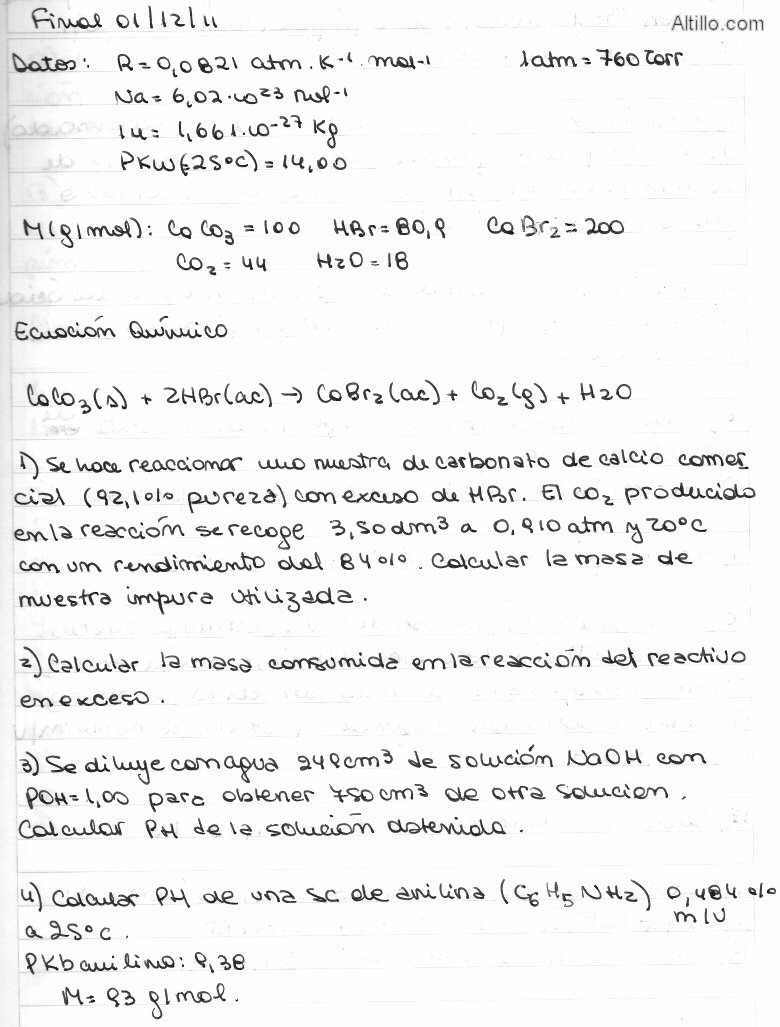 Final 01/12/11
Altillo.com
Datos: R = 0,0821 atm. K-1. mol-1 1atm = 760 Torr
Na = 6,02.10²³ mol-1
1u = 1,661.10-27 Kg
PKW(25°C) = 14,00
M(g/mol): CaCO3 = 100 HBr = 80,9 CaBr2 = 200
CO2 = 44 H2O = 18
Ecuación Químico
CaCO3(s) + 2HBr(ac) → CaBr2(ac) + CO2(g) + H2O
1) Se hace reaccionar una muestra de carbonato de calcio comer
cial (92,1% pureza) con exceso de HBr. El CO2 producido
en la reacción se recoge 3,50dm3 a 0,910 atm y 20°C
con un rendimiento del 84%. Calcular la masa de
muestra impura utilizada.
2) Calcular la masa consumida en la reacción del reactivo
en exceso.
3) Se diluye con agua 249cm3 de solución NaOH con
POH=1,00 para obtener 750cm3 de otra solucien.
Calcular PH de la solución obtenida.
4) Calcular PH de una sc de anilina (C6H5NH2) 0,484 %
m/v
a 25°C.
PKb anilina: 9,38
M= 93 g/mol.